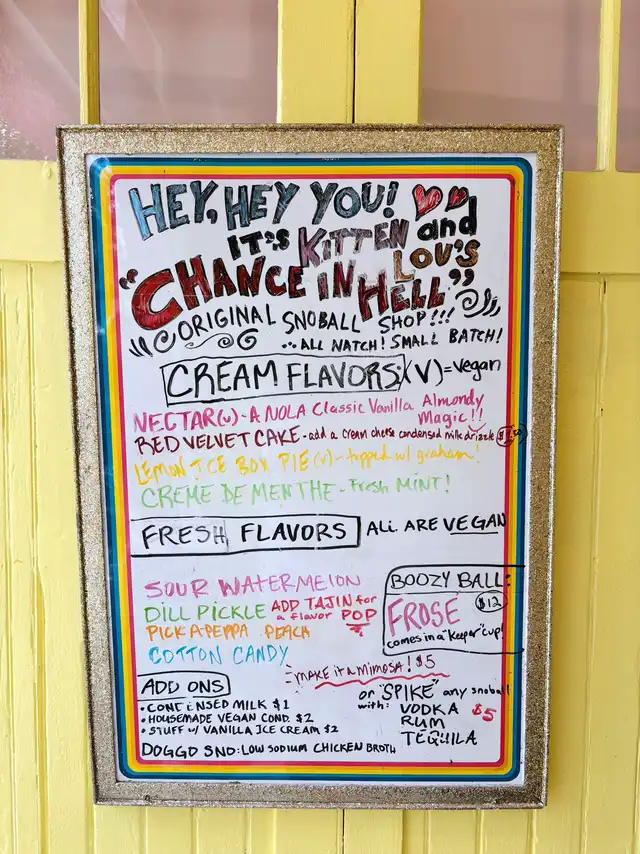 HEY, HEY YOU!
IT'S KITTEN and
LOU'S
"CHANCE IN HELL"
ORIGINAL SNOBALL SHOP!!!
... ALL NATCH! SMALL BATCH!
CREAM FLAVORS: (V) = Vegan
NECTAR(v) - A NOLA Classic Vanilla Almondy
Magic!!
RED VELVET CAKE - add a cream cheese condensed milk drizzle
LEMON ICE BOX PIE (v) - topped w/ graham!
CREME DE MENTHE - Fresh MINT!
FRESH FLAVORS ALL ARE VEGAN
SOUR WATERMELON
DILL PICKLE ADD TAJIN for
a flavor POP
PICK A PEPPA PEACH
COTTON CANDY
BOOZY BALL:
FROSE $12
comes in a "keeper" cup!
MAKE IT A MIMOSA! $5
or "SPIKE" any snoball
with: VODKA $5
RUM
TEQUILA
ADD ONS
• CONDENSED MILK $1
• HOUSEMADE VEGAN COND. $2
• STUFF w/ VANILLA ICE CREAM $2
DOGGO SNO: LOW SODIUM CHICKEN BROTH